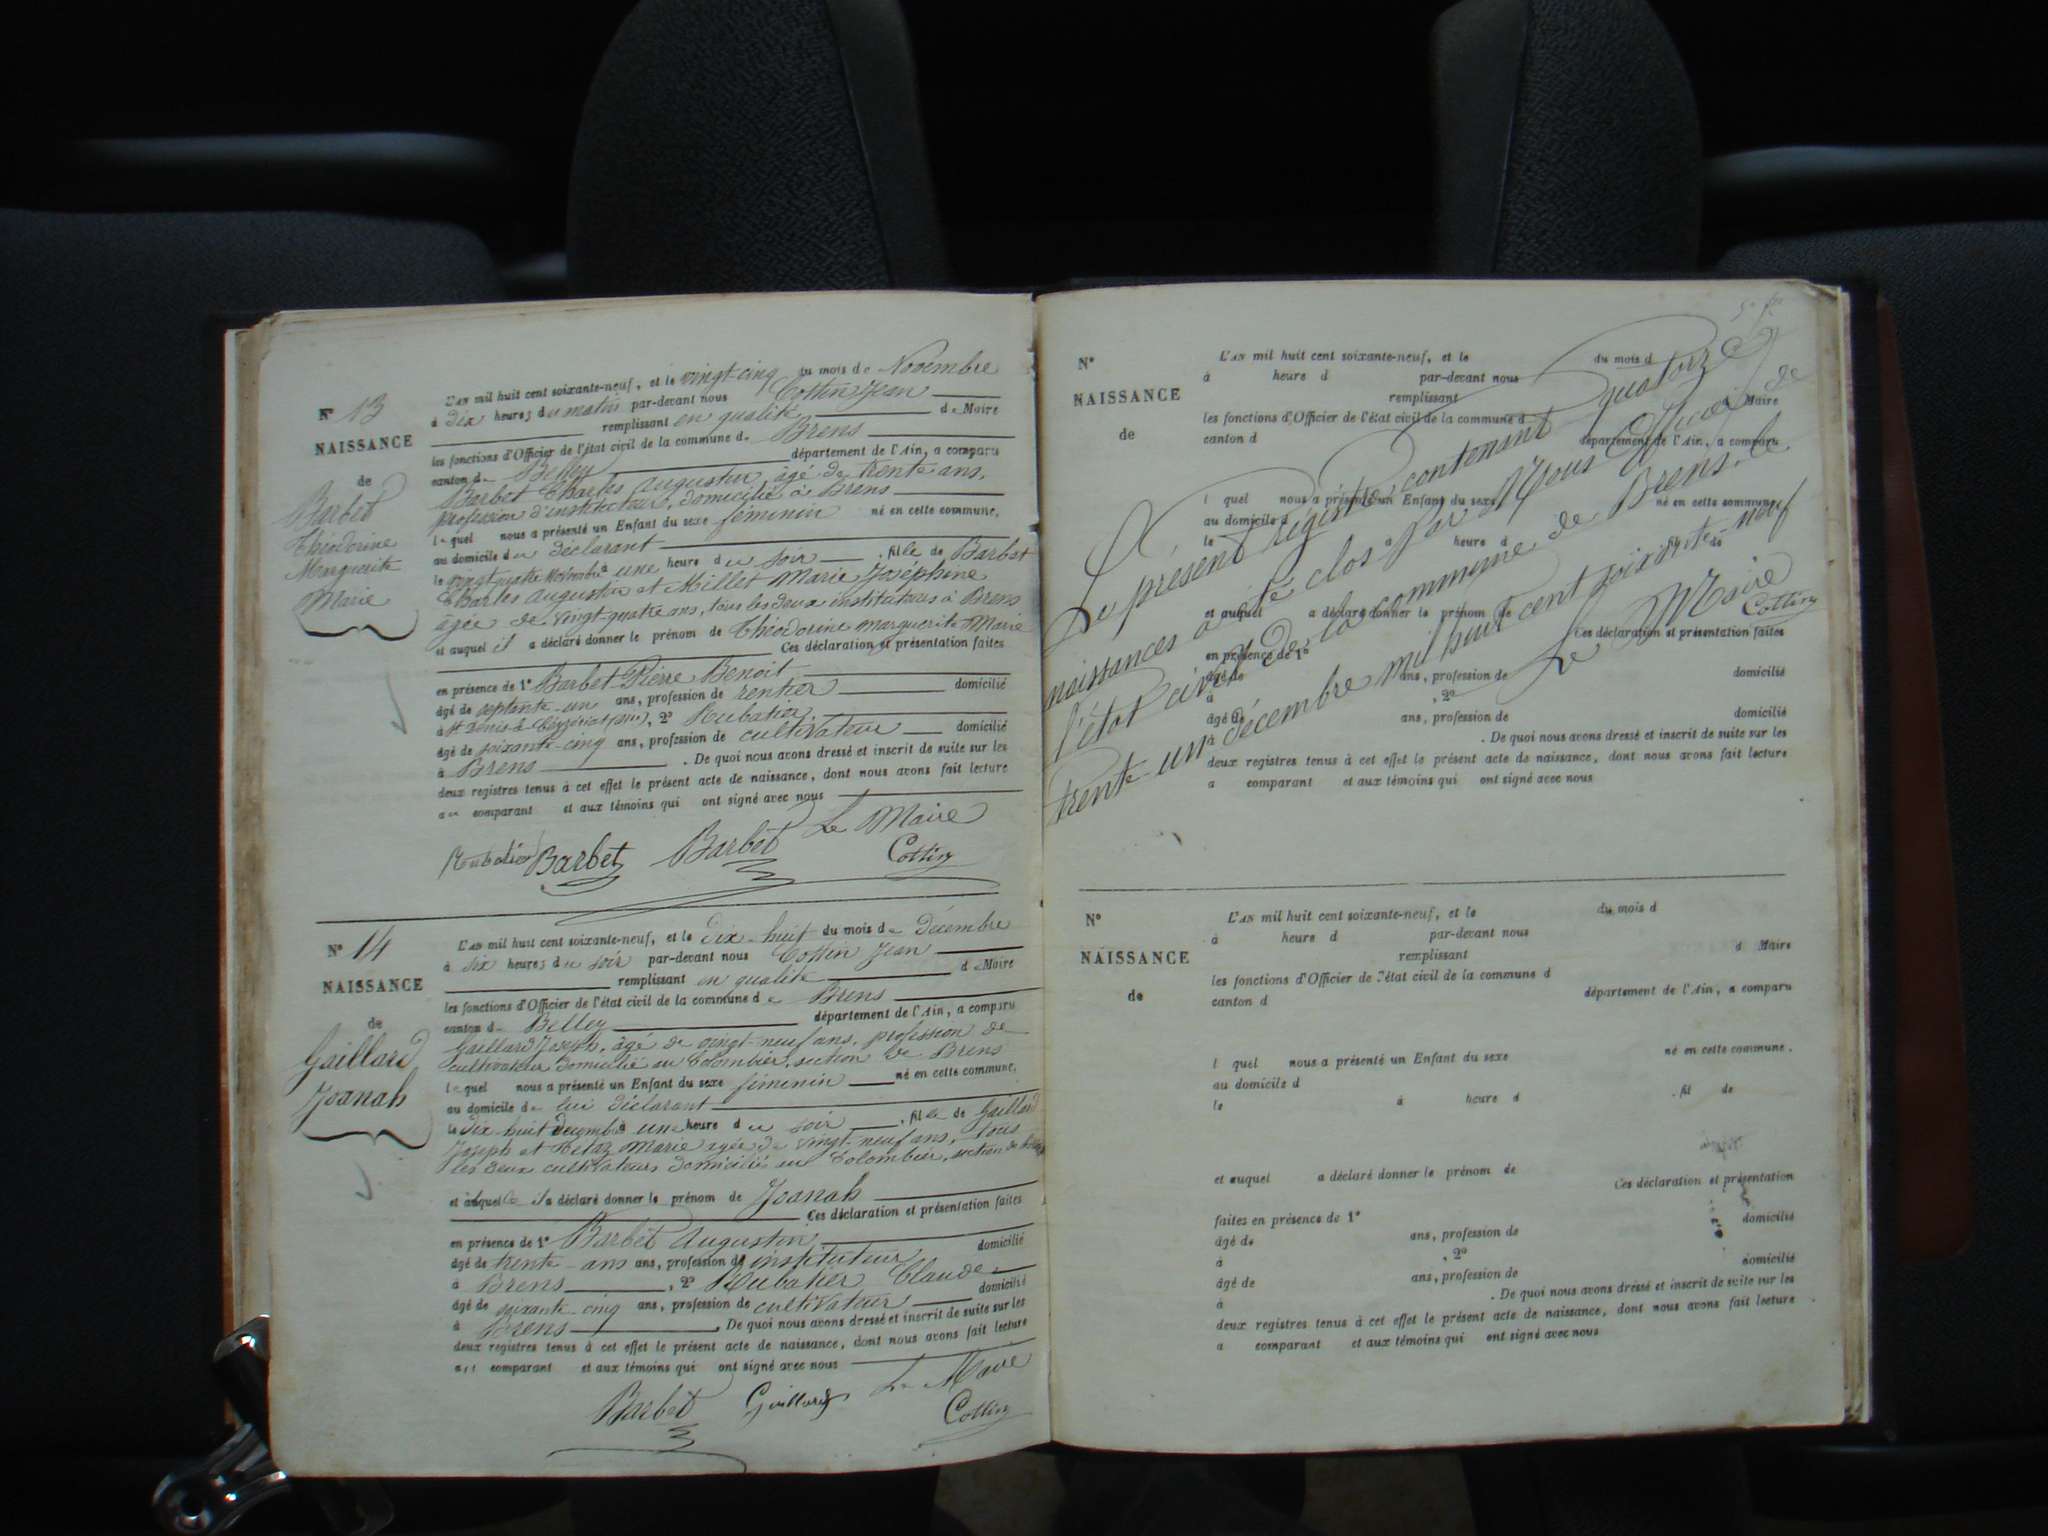 N° 13
NAISSANCE
de
Barbet
Théodorine
Marguerite
Marie
L'AN mil huit cent soixante-neuf, et le vingt-cinq du mois de Novembre
à dix heures du matin par-devant nous Cottin Jean
remplissant en qualité de Maire
les fonctions d'Officier de l'état civil de la commune de Brens
canton de Belley département de l'Ain, a comparu
Barbet Charles Augustin, âgé de trente ans,
profession d'instituteur, domicilié à Brens
lequel nous a présenté un Enfant du sexe féminin né en cette commune,
au domicile du déclarant
le vingt quatre Novembre à une heure du soir, fille de Barbet
Charles Augustin et Millet Marie Joséphine
âgée de vingt-quatre ans, tous les deux instituteurs à Brens
et auquel il a déclaré donner le prénom de Théodorine Marguerite Marie
Ces déclaration et présentation faites
en présence de 1° Barbet Pierre Benoit
âgé de septante-un ans, profession de rentier domicilié
à St Denis-le- , 2°
âgé de soixante-cinq ans, profession de cultivateur domicilié
à Brens . De quoi nous avons dressé et inscrit de suite sur les
deux registres tenus à cet effet le présent acte de naissance, dont nous avons fait lecture
au comparant et aux témoins qui ont signé avec nous
Le Maire
Barbet Barbet Cottin
N° 14
NAISSANCE
de
Gaillard
Joanah
L'AN mil huit cent soixante-neuf, et le dix-huit du mois de Décembre
à six heures du soir par-devant nous Cottin Jean
remplissant en qualité de Maire
les fonctions d'Officier de l'état civil de la commune de Brens
canton de Belley département de l'Ain, a comparu
Gaillard Joseph, âgé de vingt-neuf ans, profession de
cultivateur domicilié au Colombier, section de Brens
lequel nous a présenté un Enfant du sexe féminin né en cette commune,
au domicile de lui déclarant
le dix huit décembre à une heure du soir, fille de Gaillard
Joseph et Marie agée de vingt-neuf ans, tous
les deux cultivateurs domiciliés au Colombier, section de Brens
et auquel il a déclaré donner le prénom de Joanah
Ces déclaration et présentation faites
en présence de 1° Barbet Augustin
âgé de trente ans ans, profession de instituteur domicilié
à Brens , 2° Claude
âgé de soixante-cinq ans, profession de cultivateur domicilié
à Brens . De quoi nous avons dressé et inscrit de suite sur les
deux registres tenus à cet effet le présent acte de naissance, dont nous avons fait lecture
au comparant et aux témoins qui ont signé avec nous
Le Maire
Barbet Gaillard Cottin
N°
NAISSANCE
de
L'AN mil huit cent soixante-neuf, et le du mois d
à heure d par-devant nous
remplissant d Maire
les fonctions d'Officier de l'état civil de la commune d
canton d département de l'Ain, a comparu
l quel nous a présenté un Enfant du sexe né en cette commune,
au domicile d
le à heure d fil de
et auquel a déclaré donner le prénom de
Ces déclaration et présentation faites
en présence de 1°
âgé de ans, profession de domicilié
à , 2°
âgé de ans, profession de domicilié
. De quoi nous avons dressé et inscrit de suite sur les
deux registres tenus à cet effet le présent acte de naissance, dont nous avons fait lecture
a comparant et aux témoins qui ont signé avec nous
Le présent registre contenant quatorze
naissances a été clos par Nous Officier de
l'état civil de la commune de Brens le
trente-un décembre mil huit cent soixante-neuf
Le Maire
Cottin
N°
NAISSANCE
de
L'AN mil huit cent soixante-neuf, et le du mois d
à heure d par-devant nous
remplissant d Maire
les fonctions d'Officier de l'état civil de la commune d
canton d département de l'Ain, a comparu
l quel nous a présenté un Enfant du sexe né en cette commune.
au domicile d
le à heure d . fil de
et auquel a déclaré donner le prénom de
Ces déclaration et présentation
faites en présence de 1°
âgé de ans, profession de domicilié
à , 2°
âgé de ans, profession de domicilié
à . De quoi nous avons dressé et inscrit de suite sur les
deux registres tenus à cet effet le présent acte de naissance, dont nous avons fait lecture
a comparant et aux témoins qui ont signé avec nous